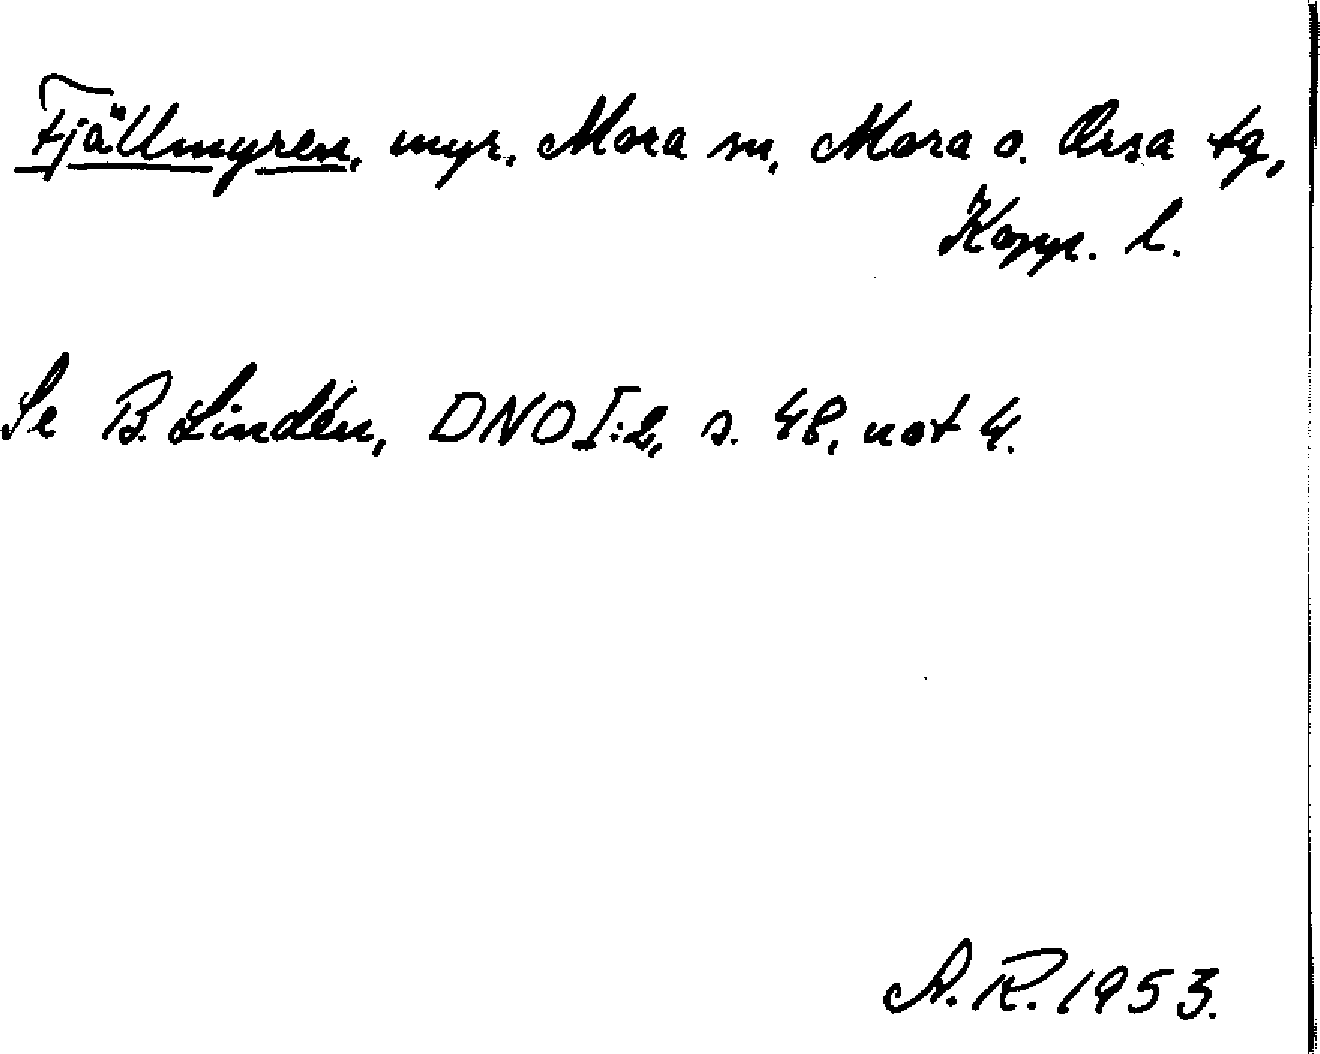 Fjällmyren, myr, Mora sn, Mora o. Orsa tg,
Kopp. l.
Se B. Lindén, DNO I:2, s. 48, not 4.
A. R. 1953.